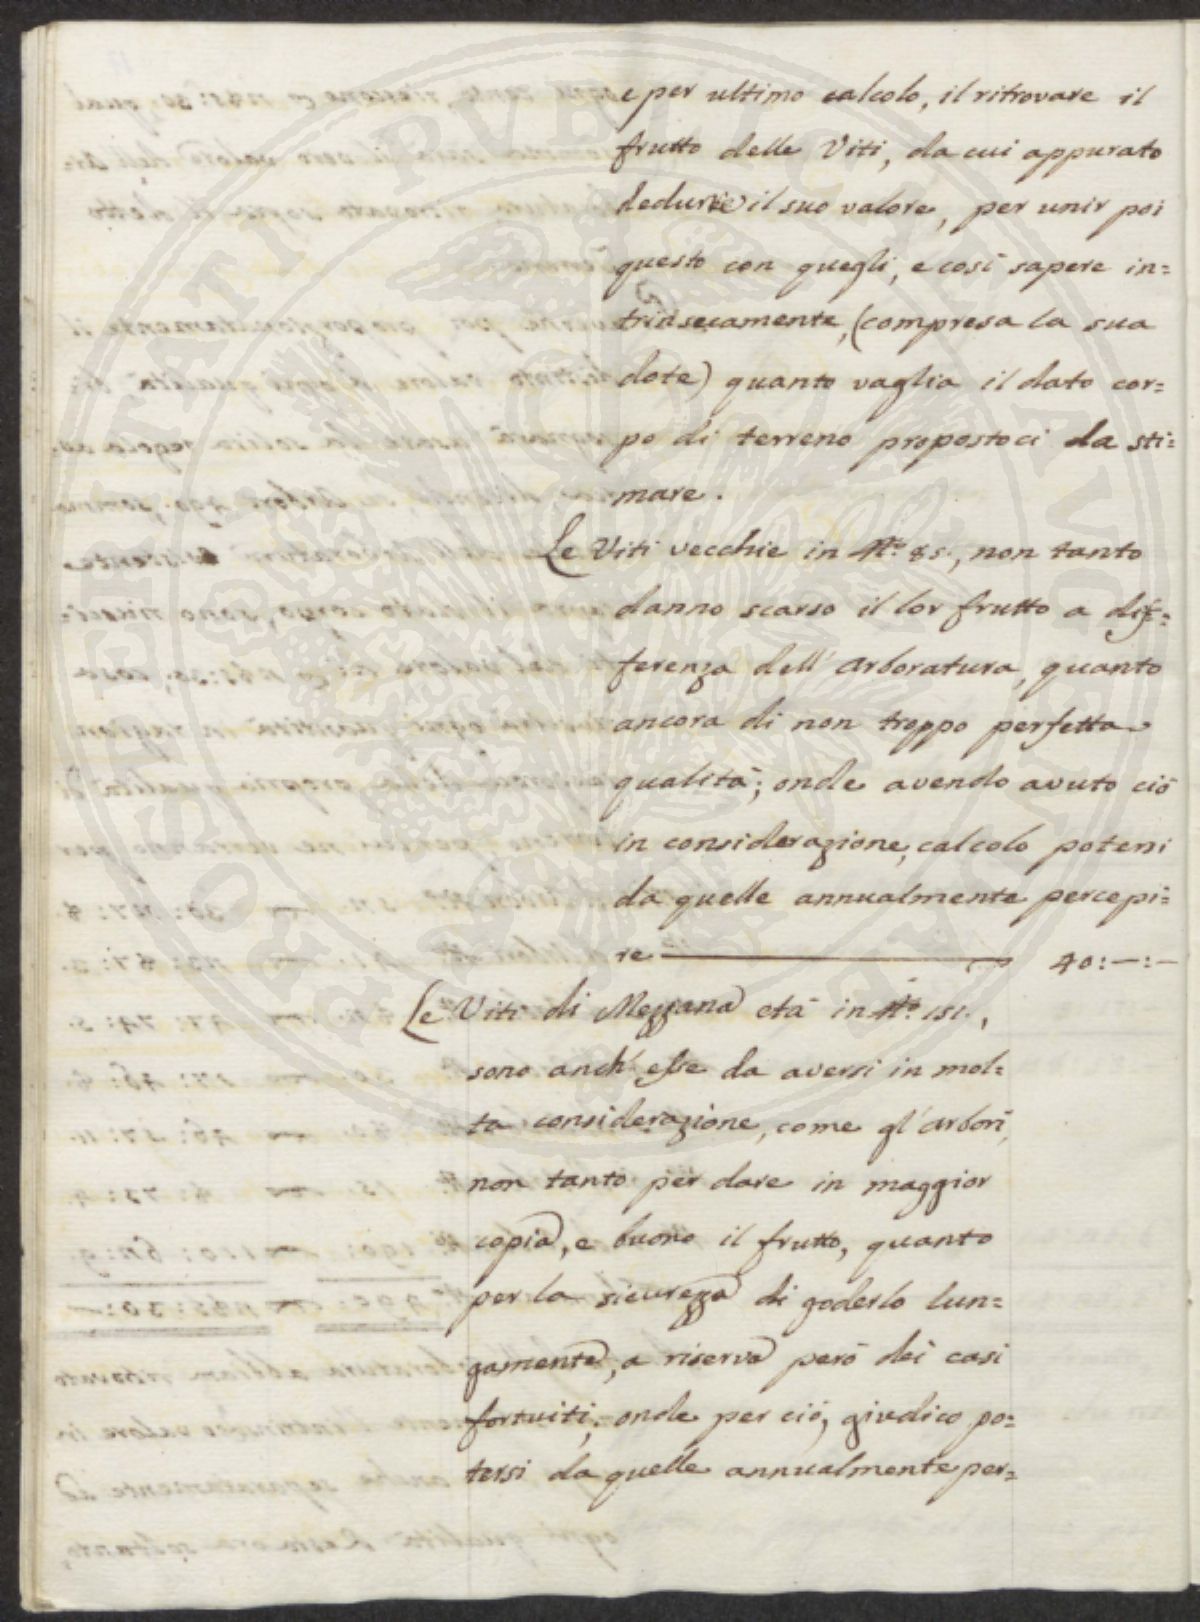 e per ultimo calcolo, il ritrovare il
frutto delle Viti, da cui appurato
dedurre il suo valore, per unir poi
questo con quegli, e così sapere in=
trinsecamente, (compresa la sua
dote) quanto vaglia il dato cor=
po di terreno propostoci da sti=
mare.
Le Viti vecchie in N.º 85., non tanto
danno scarso il lor frutto a dif=
ferenza dell' arboratura, quanto
ancora di non troppo perfetta
qualità; onde avendo avuto ciò
in considerazione, calcolo potersi
da quelle annualmente percepi=
re 40:—:—
Le Viti di Mezzana età in N.º 151.,
sono anch' esse da aversi in mol=
ta considerazione, come gl' arbori,
non tanto per dare in maggior
copia, e buono il frutto, quanto
per la sicurezza di goderlo lun=
gamente, a riserva però dei casi
fortuiti; onde per ciò, giudico po=
tersi da quelle annualmente per=